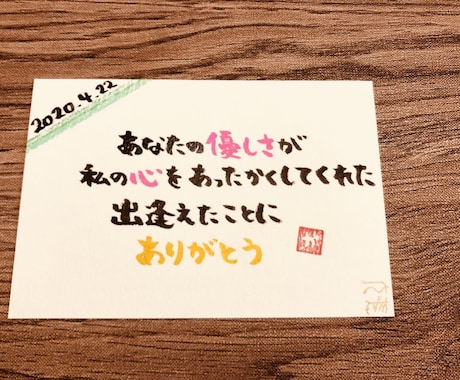 2020.4.22
あなたの優しさが
私の心をあったかくしてくれた
出逢えたことに
ありがとう